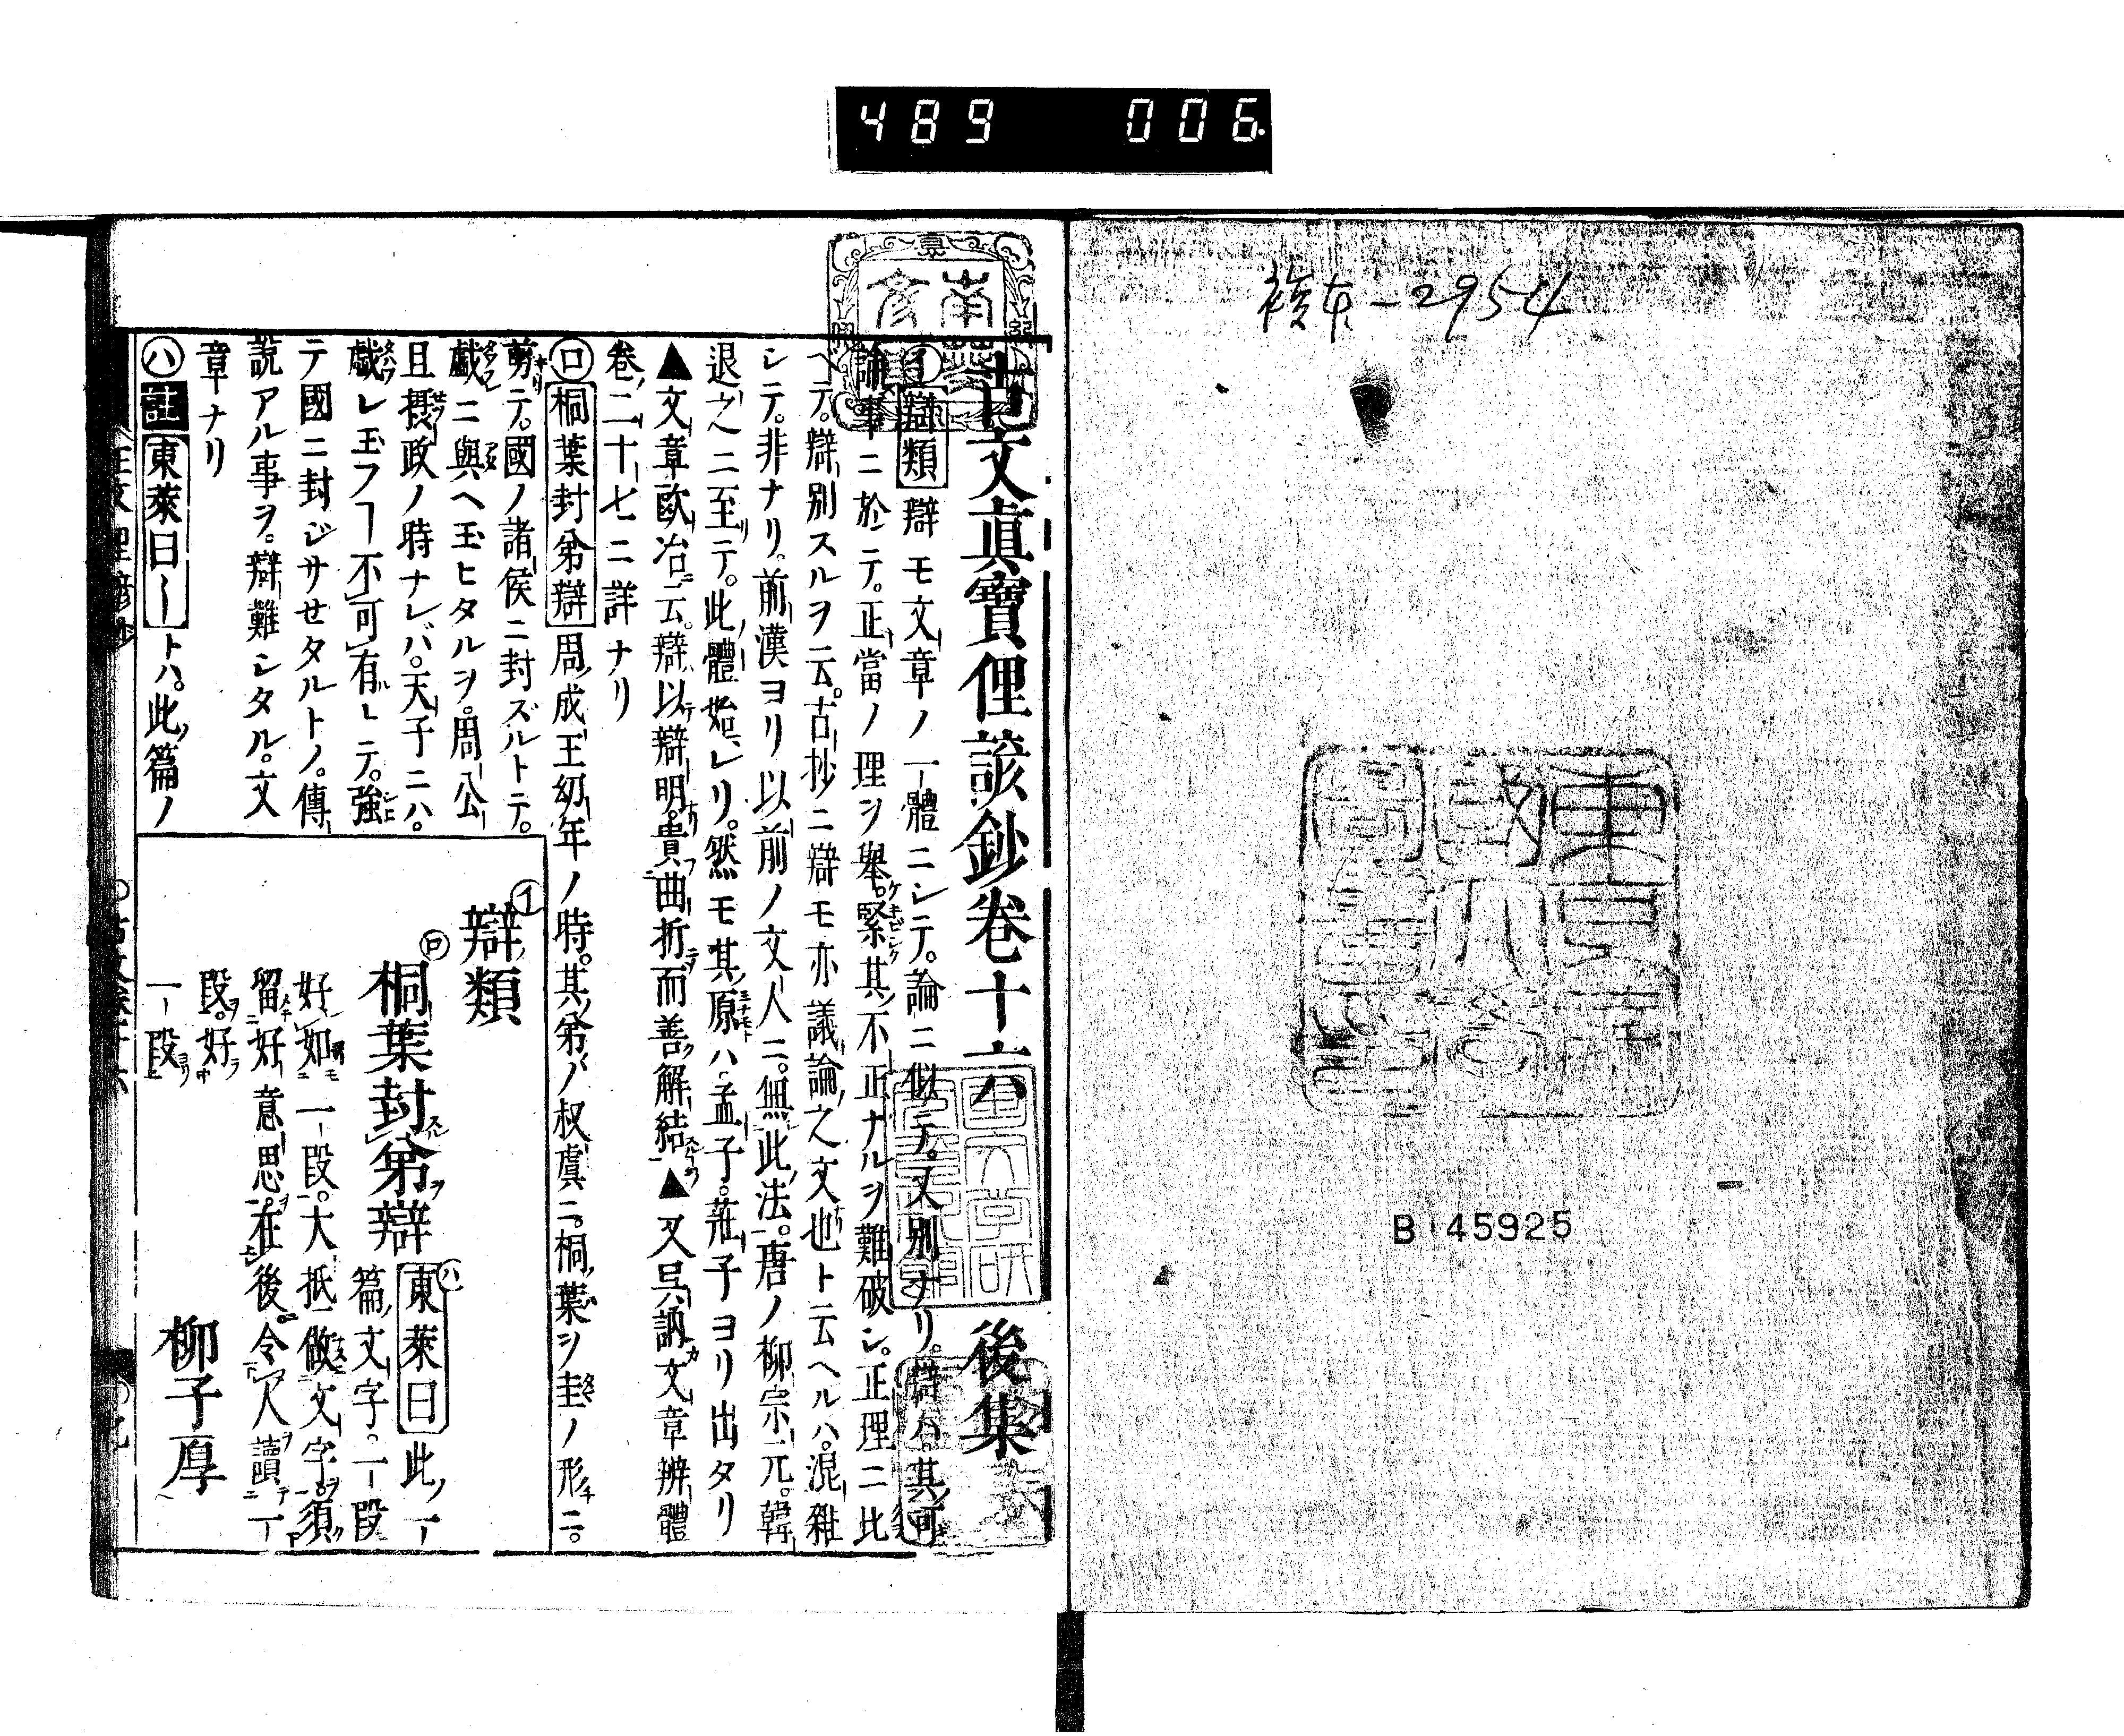 489 006
積本-2954
B 45925
古文眞寶俚諺鈔卷十六 後集
㋑辯類 辯モ文章ノ一體ニシテ。論ニ似テ。又別ナリ。辯ハ。其可
論事ニ於テ。正當ノ理ヲ擧。緊其不正ナルヲ難破シ。正理ニ比
ヘテ。辯別スルヲ云。古抄ニ辯モ亦議論之文也ト云ヘルハ。混雜
シテ。非ナリ。前漢ヨリ以前ノ文人ニ。無此法。唐ノ柳宗元。韓
退之ニ至テ。此體始レリ。然モ其原ハ孟子。莊子ヨリ出タリ
▲文章歐冶云。辯以辯明。貴曲折而善解結▲又呉訥文章辨體
卷二十七ニ詳ナリ
㋺桐葉封弟辯 周成王幼年ノ時。其弟ノ叔虞ニ。桐葉ヲ圭ノ形ニ。
剪テ。國ノ諸侯ニ封ズルトテ。
戲ニ與ヘ玉ヒタルヲ。周公
且攝政ノ時ナレバ。天子ニハ。
戲レ玉フヿ不可有レテ。強
テ國ニ封ジサせタルトノ。傳
説アル事ヲ。辯難シタル。文
章ナリ
㋩註東萊曰〡トハ。此篇ノ
㋑辯類
㋺桐葉封弟辯 ㋩東萊曰此一
篇文字。一段
好如一段。大抵做文字須
留好意思在後令人讀一
段。好
一段
柳子厚